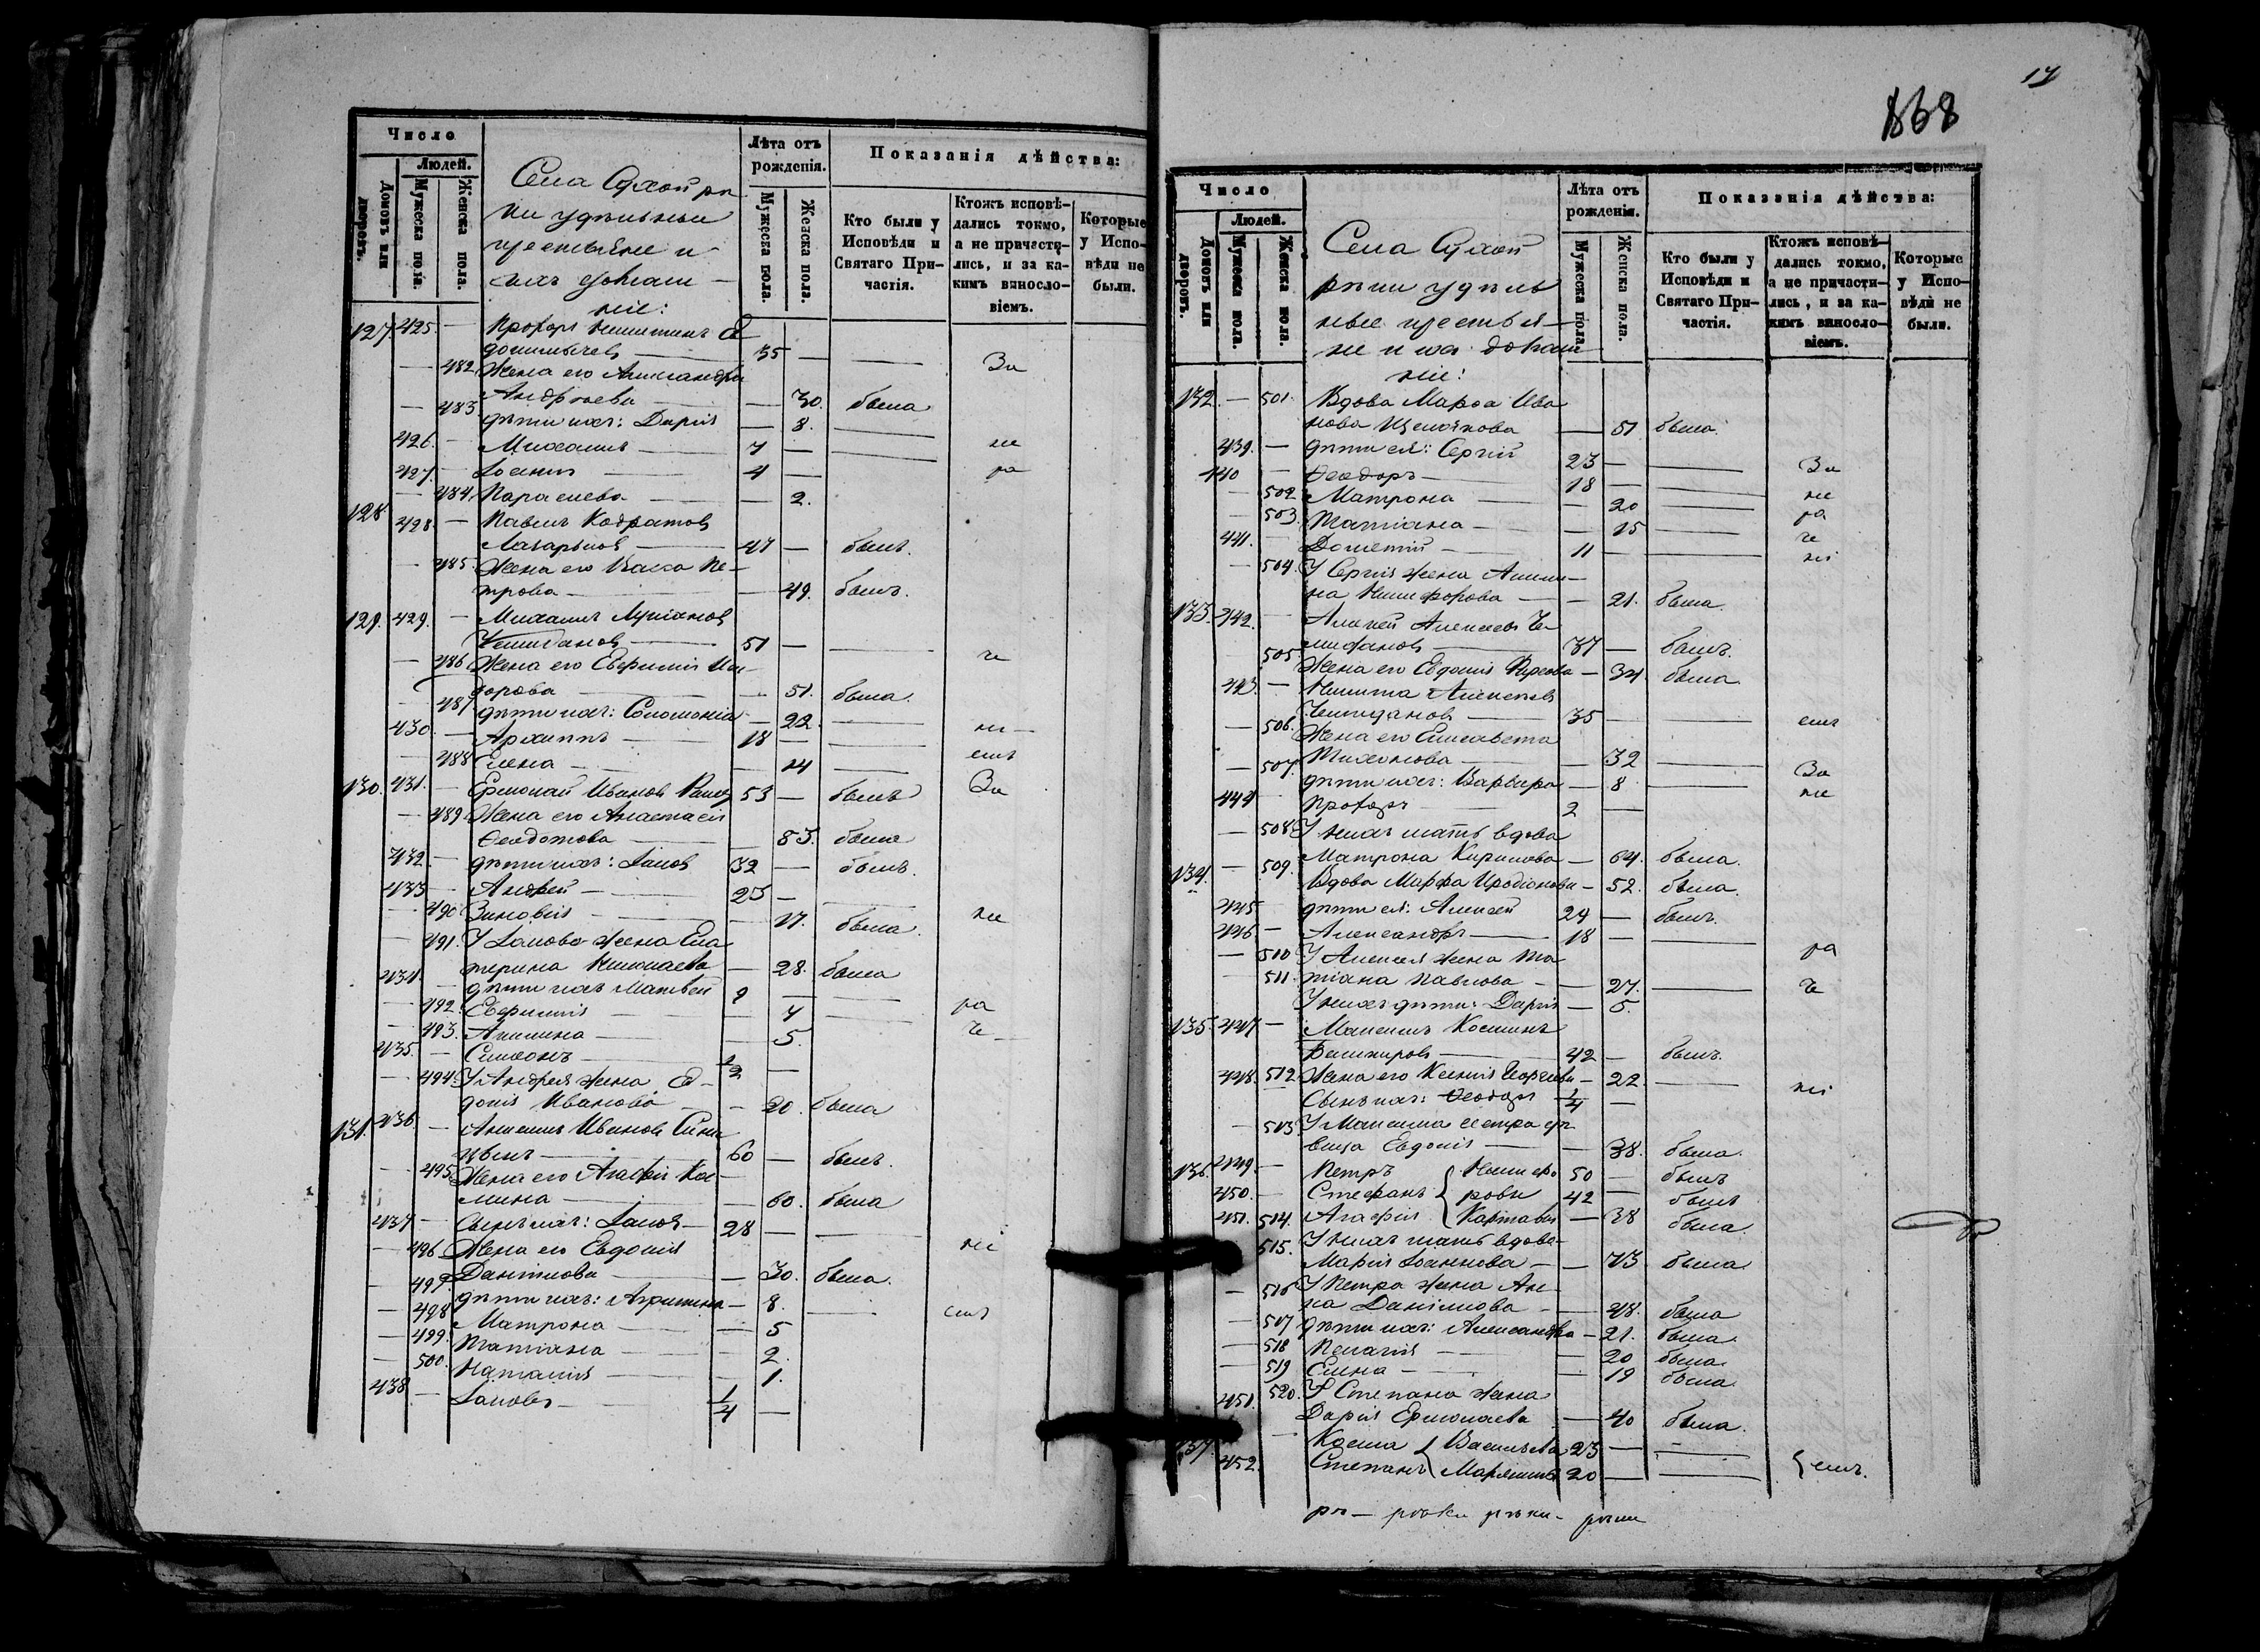 Число
Людей.
Домовъ или дворовъ.
Мужеска пола.
Женска пола.
Села Сухой рѣ
ки удѣльные
крестьяне и
ихъ домаш
ніе:
Лѣта отъ рожденія.
Мужеска пола.
Женска пола.
Показанія дѣйства:
Кто были у Исповѣди и Святаго При-частія.
Ктожъ исповѣ-дались токмо, а не причасти-лись, и за ка-кимъ винослo-віемъ.
Которые у Испо-вѣди не были.
127. 425. — Прохоръ Никитинъ
35 — За
— 482. Жена его Александра
Андреева — 30. была
— 483. дѣти ихъ: Дарія — 8.
426. — Михаилъ 7 — не
427. — Іоаннъ 4 — ра
— 484. Параскева — 2.
128. 428. — Павелъ Кодратов
Лазарьков 47 — былъ.
— 485. Жена его Васса Пе-
трова — 49. былъ.
129. 429. — Михаилъ Лукіанов
Чемиданов 51 — че
— 486. Жена его Евфимія
дорова — 51. была.
— 487. дѣти ихъ: Соломонія — 22. ні
430. — Архиппъ 18 —
— 488. Елена — 14 емъ
130. 431. — Ермолай Иванов 53 — былъ За
— 489. Жена его Анастасія
Ѳеодотова — 53. была
432. — дѣти ихъ: Іаков 32 — былъ.
433 — Андрей 25 —
— 490 Зиновія — 17. была. не
— 491. У Іакова жена Ека
терина Николаева — 28. была
434 — дѣти ихъ Матвей 9 —
— 492. Евфимія — 7 ра
— 493. Акилина — 5. че
435. — Симеонъ 1/2 —
— 494. У Андрея жена Ев-
докія Иванова — 20. была
131. 436 — Анисимъ Иванов
60 — былъ.
— 495. Жена его Агафія Кос
мина — 60. была
437 — Сынъ ихъ: Іаков 28 — ні
— 496 Жена его Евдокія
Даніилова — 30. была.
— 497. дѣти ихъ: Агрипина — 8. емъ
— 498 Матрона — 5
— 499. Татіана — 2.
— 500. Наталія — 1.
438. — Іаковъ 1/4 —
17
868
Число
Людей.
Домовъ или дворовъ.
Мужеска пола.
Женска пола.
Села Сухой
рѣки удѣль
ные крестья
не и ихъ домаш
ніе:
Лѣта отъ рожденія.
Мужеска пола.
Женска пола.
Показанія дѣйства:
Кто были у Исповѣди и Святаго При-частія.
Ктожъ исповѣ-дались токмо, а не причасти-лись, и за ка-кимъ винослo-віемъ.
Которые у Испо-вѣди не были.
132. — 501. Вдова Марѳа Ива
нова — 51 была.
439. — дѣти ея: Сергій 23 — За
440 — Ѳеодоръ 18 — не
— 502 Матрона — 20 ра
— 503. Татіана — 15 че
441. — Дометій 11 — ні
— 504. У Сергія жена Акили-
на Никифорова — 21. была.
133. 442. — Алексей Алексеев Че
миданов 37 — былъ.
505. Жена его Евдокія — 34 была.
443. — Никита Алексеев
Чемиданов 35 — емъ
— 506. Жена его Елисавета
Тихонова — 32 За
— 507. дѣти ихъ: Варвара — 8 не
444 Прохоръ 2 —
— 508 У нихъ мать вдова
Матрона Кирилова — 64. была.
134. — 509. Вдова Марѳа Иродіонова — 52. была.
445 дѣти ея: Алексей 24 — былъ.
446 — Александръ 18 — ра
— 510 У Алексея жена Та
тіана Павлова — 27. че
— 511. У нихъ дѣти: Дарія — 5.
135. 447 — Максимъ Косминъ
Башкиров 42 — былъ.
448. 512 Жена его Ксенія Георгіева — 22. ні
Сынъ ихъ: Ѳеодоръ 1/4 —
— 513 У Максима сестра дѣ
вица Евдокія — 38. была.
136. 449 — Петръ Никифо 50 — былъ
450. — Стефанъ ровы 42 — былъ
451. 514. Агафія — 38 была.
515. У нихъ мать вдова
Марія Іоаннова — 73 была.
— 516 У Петра жена Ан-
на Даніилова — 48. была
— 517 дѣти ихъ: Александра — 21. была.
— 518 Пелагія — 20 была.
— 519 Елена — 19 была
451. 520. У Степана жена
Дарія Ермолаева — 40 была.
137. — Косма Васильевы 23 —
452. Степанъ 20 — емъ.